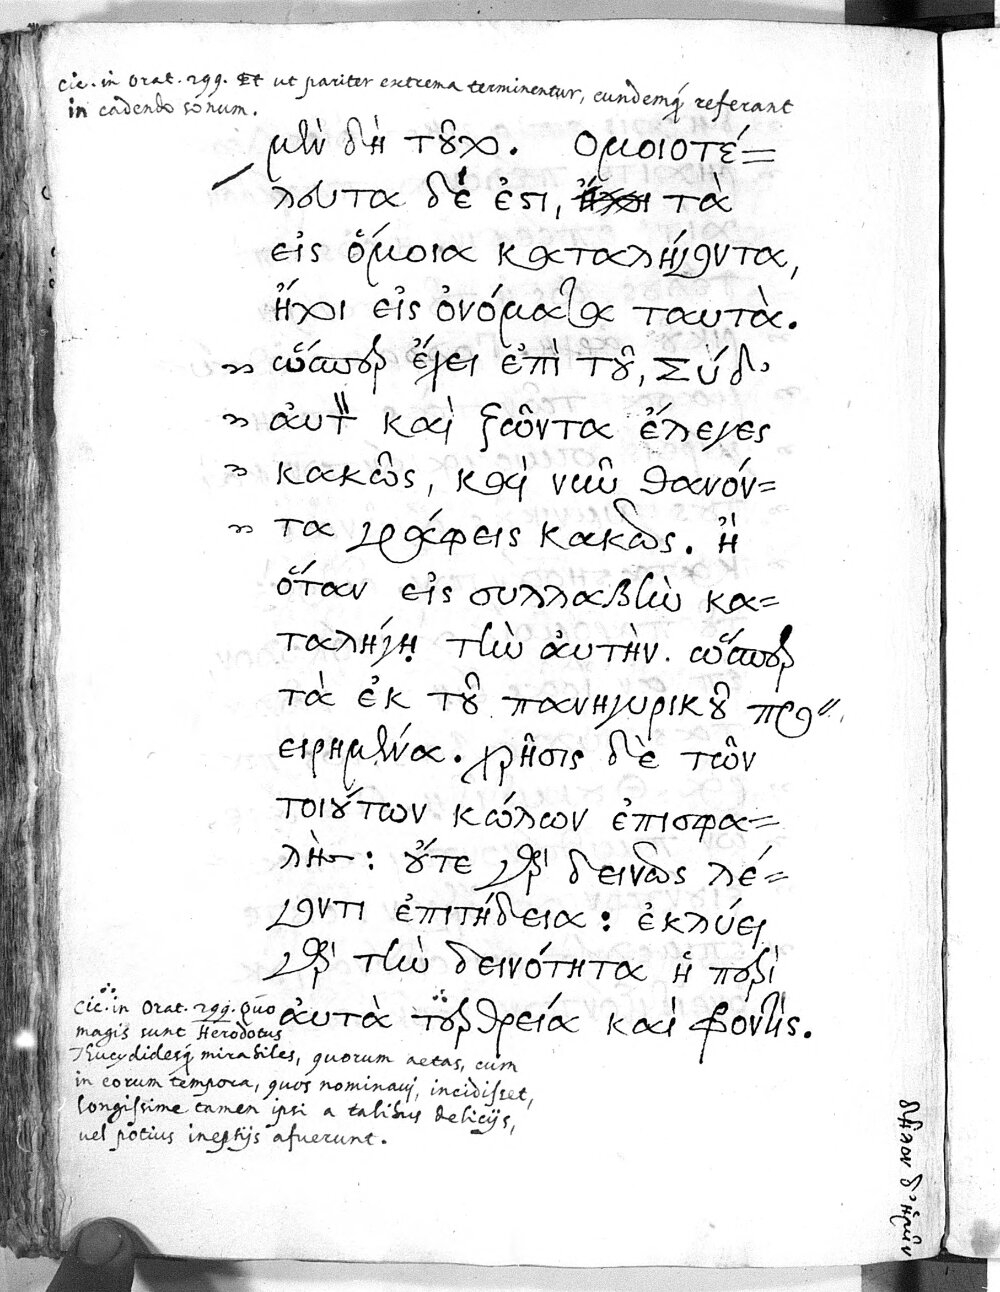 Cic. in Orat. 299. Et ut pariter extrema terminentur, eundemq́ referant
in cadendo sonum.
μὲν δὴ τοῦτο. Ὁμοιοτέ=
λουτα δέ ἐστι, τὰ
εἰς ὅμοια καταλήγοντα,
ἤτοι εἰς ὀνόματα ταυτὰ.
ὥσπερ ἔχει ἐπὶ τοῦ, Σύ δ'
αὐτὸν καὶ ζῶντα ἔλεγες
κακῶς, καὶ νῦν θανόν=
τα γράφεις κακῶς. ἢ
ὅταν εἰς συλλαβὴν κα=
ταλήγῃ τὴν αὐτὴν. ὥσπερ
τὰ ἐκ τοῦ πανηγυρικοῦ προ
ειρημένα. χρῆσις δὲ τῶν
τοιούτων κώλων ἐπισφα=
λὴς: οὔτε γὰρ δεινῶς λέ=
γοντι ἐπιτήδεια: ἐκλύει
γὰρ τὴν δεινότητα ἡ περὶ
αὐτὰ τερθρεία καὶ φροντίς.
Cic. in Orat. 299. Quo
magis sunt Herodotus
Thucydidesq́ mirabiles, quorum aetas, cum
in eorum tempora, quos nominavi, incidisset,
longissime tamen ipsi a talibus delicijs,
vel potius ineptijs afuerunt.
δῆλον δ' ἡμῖν